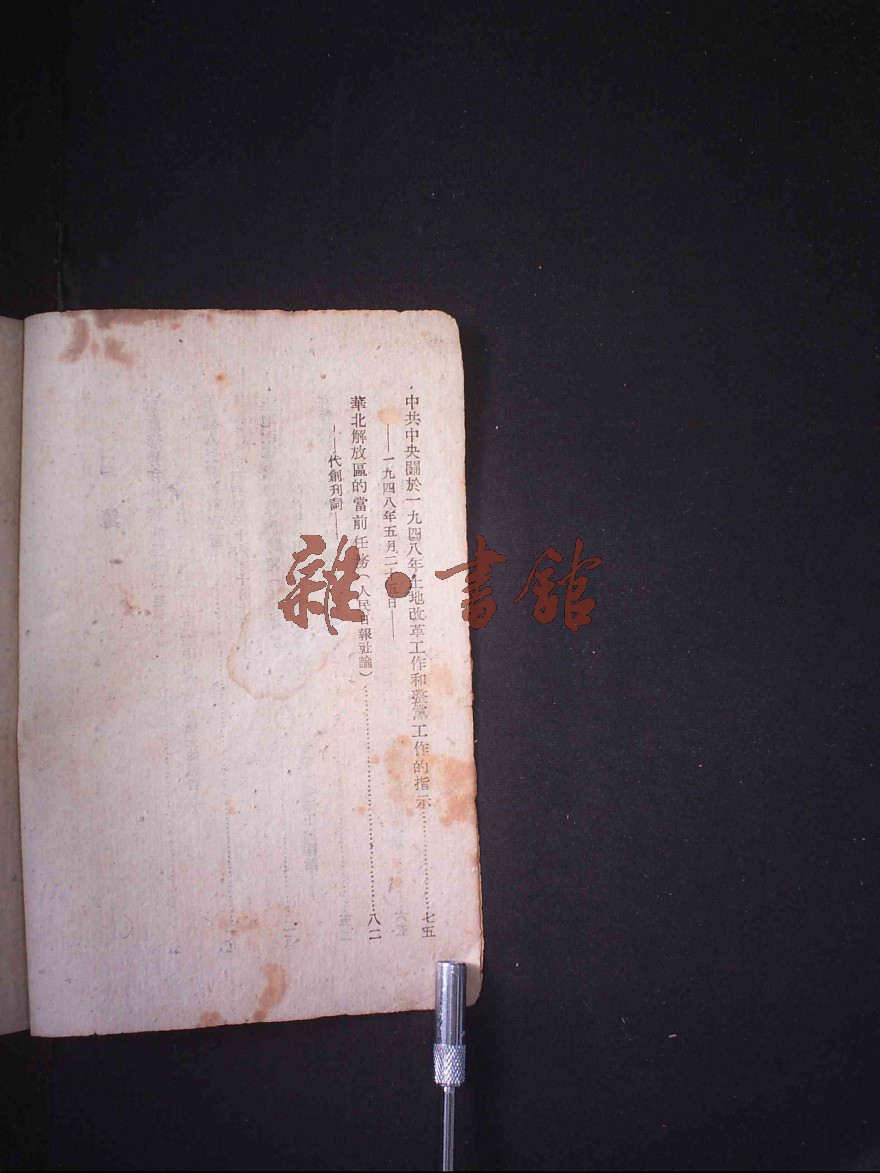 中共中央關於一九四八年土地改革工作和整黨工作的指示……………七五
——一九四八年五月二十五日——
華北解放區的當前任務(人民日報社論)……………八二
——代創刊詞——
雜·書館